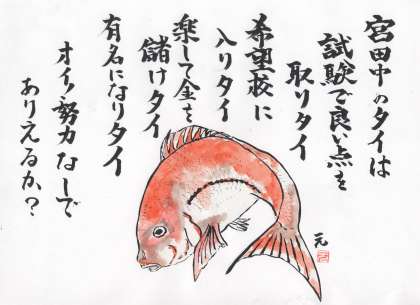 宮田中のタイは
試験で良い点を
取りタイ
希望校に
入りタイ
楽して金を
儲けタイ
有名になりタイ
オイ努力なしで
ありえるか?
元